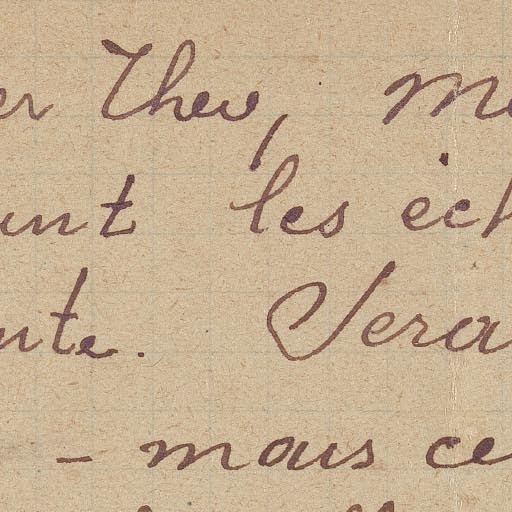 er Theo, me
unt les éch
nte. Sera
- mais ce